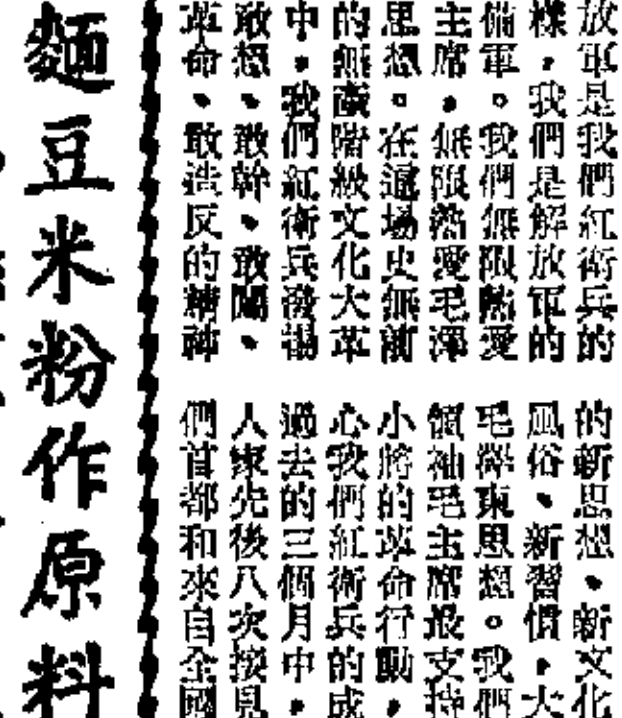 放軍是我們紅衛兵的
樣，我們是解放軍的
備軍。我們無限熱愛
主席，無限熱愛毛澤
思想。在這場史無前
的無產階級文化大革
中，我們紅衛兵發揚
敢想、敢幹、敢闖、
革命、敢造反的精神
的新思想、新文化
風俗、新習慣，大
毛澤東思想。我們
領袖毛主席最支持
小將的革命行動，
心我們紅衛兵的成
過去的三個月中，
人家先後八次接見
們首都和來自全國
麵豆米粉作原料